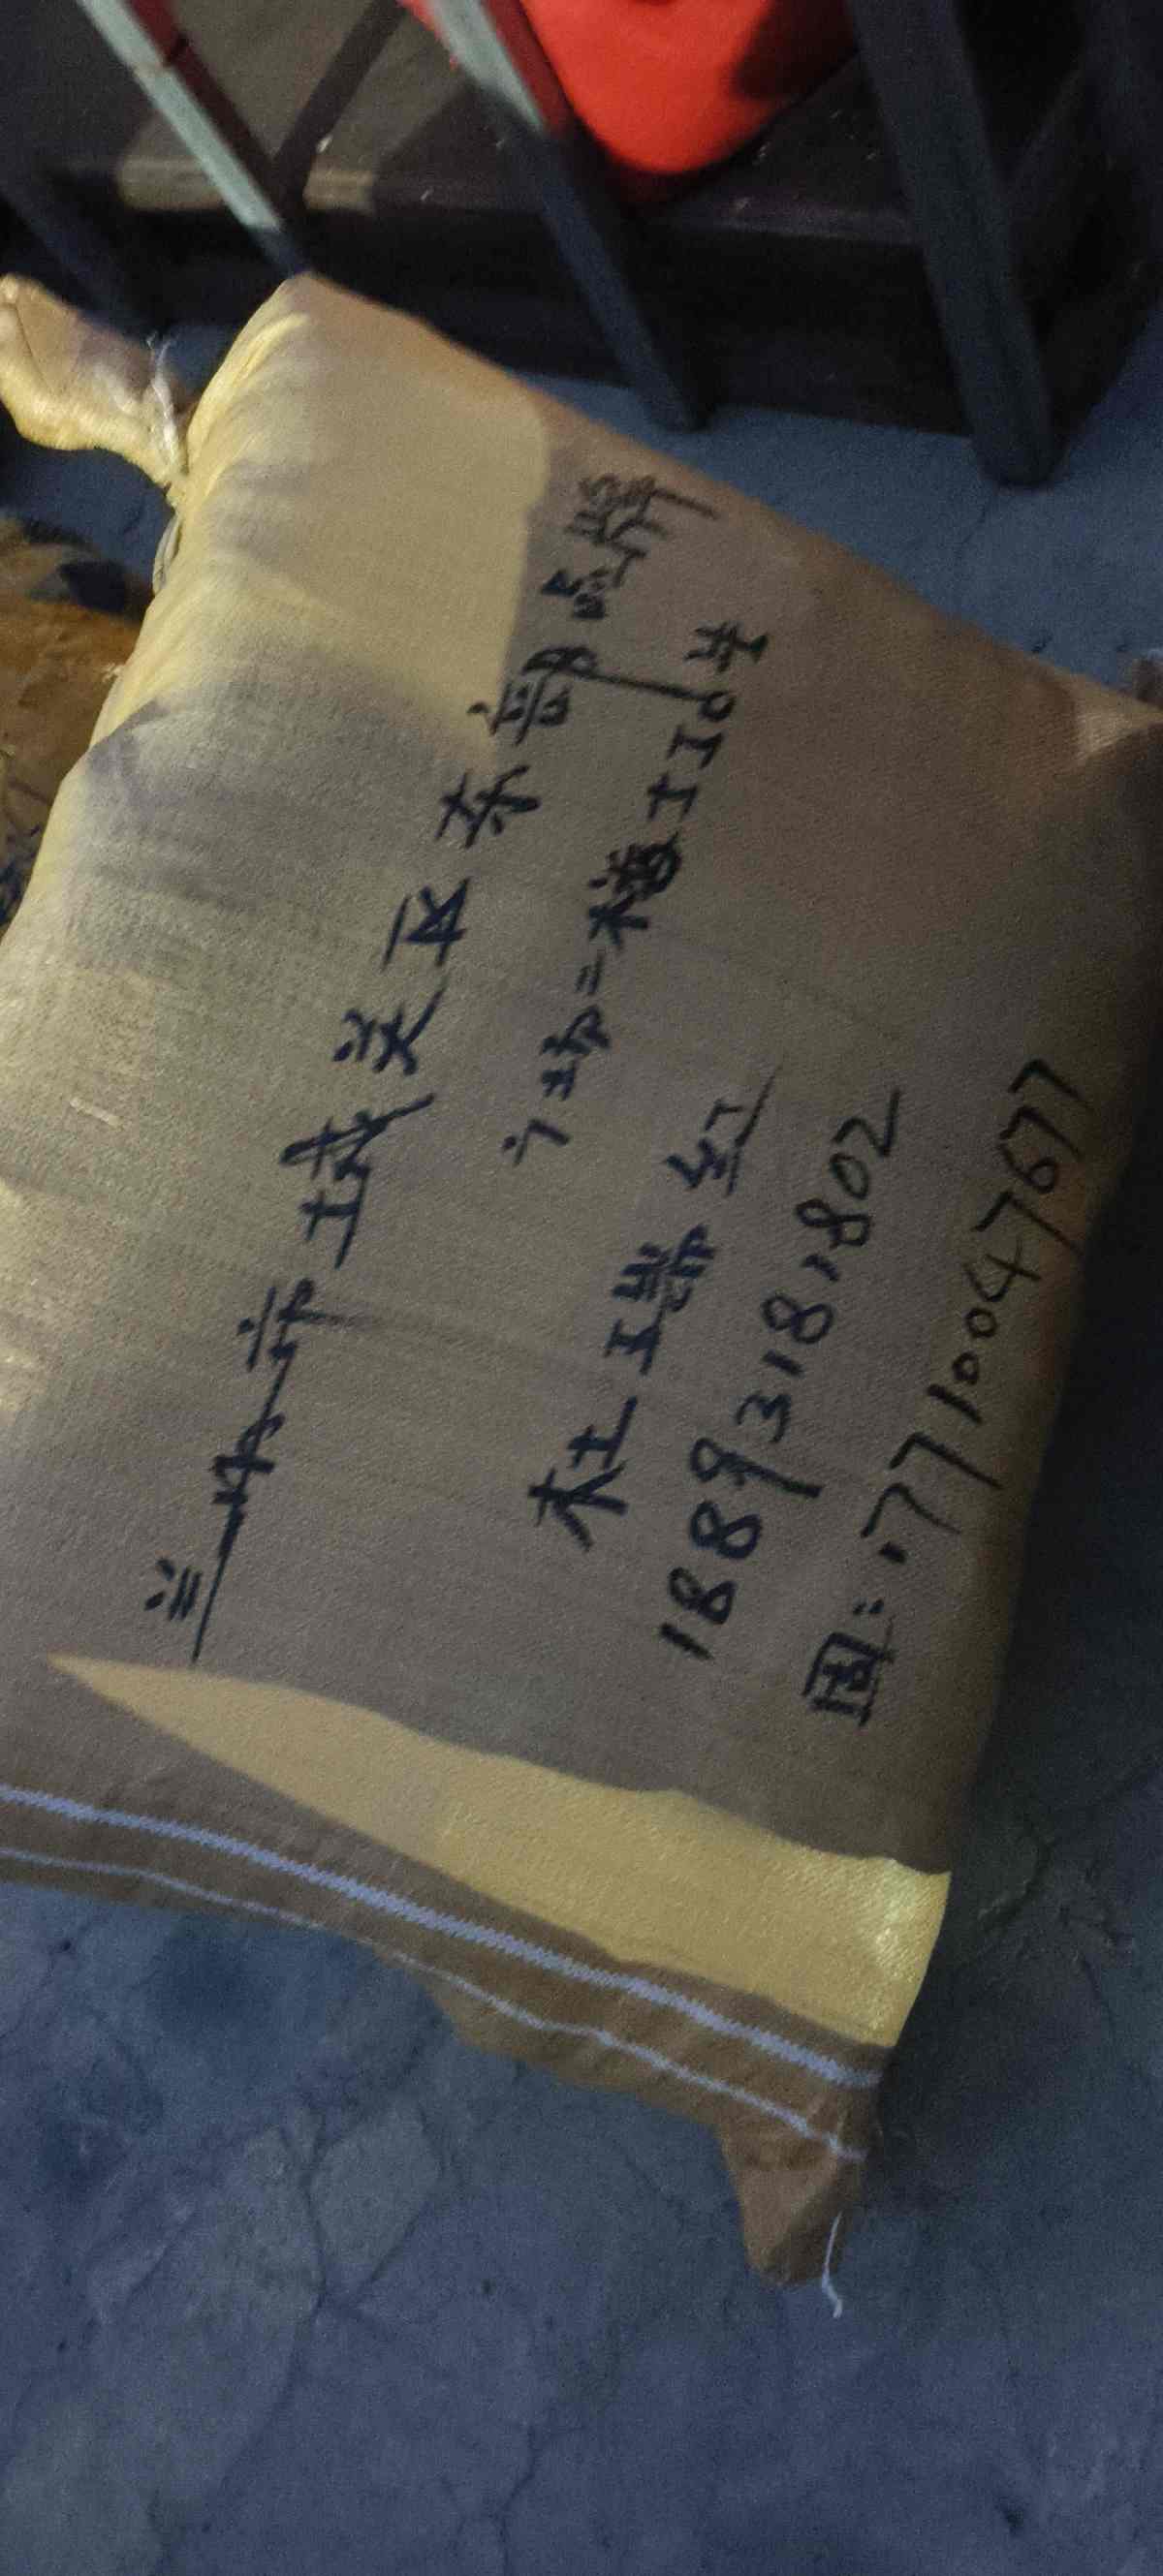 兰州市城关区东部品牌
广场二楼1110号
杜瑞红
18893181802
固:17710047677